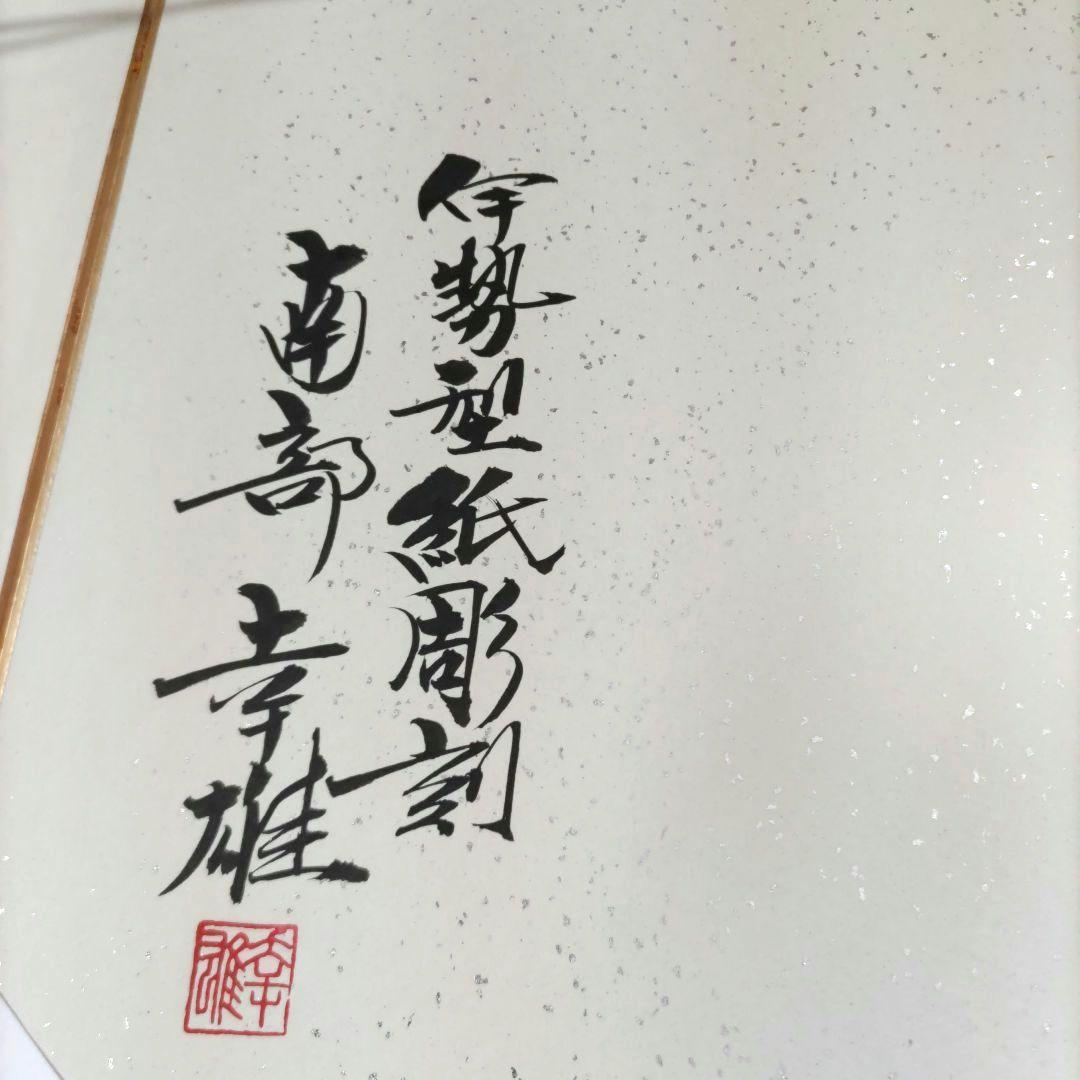 伊勢型紙彫刻
南部幸雄
幸雄